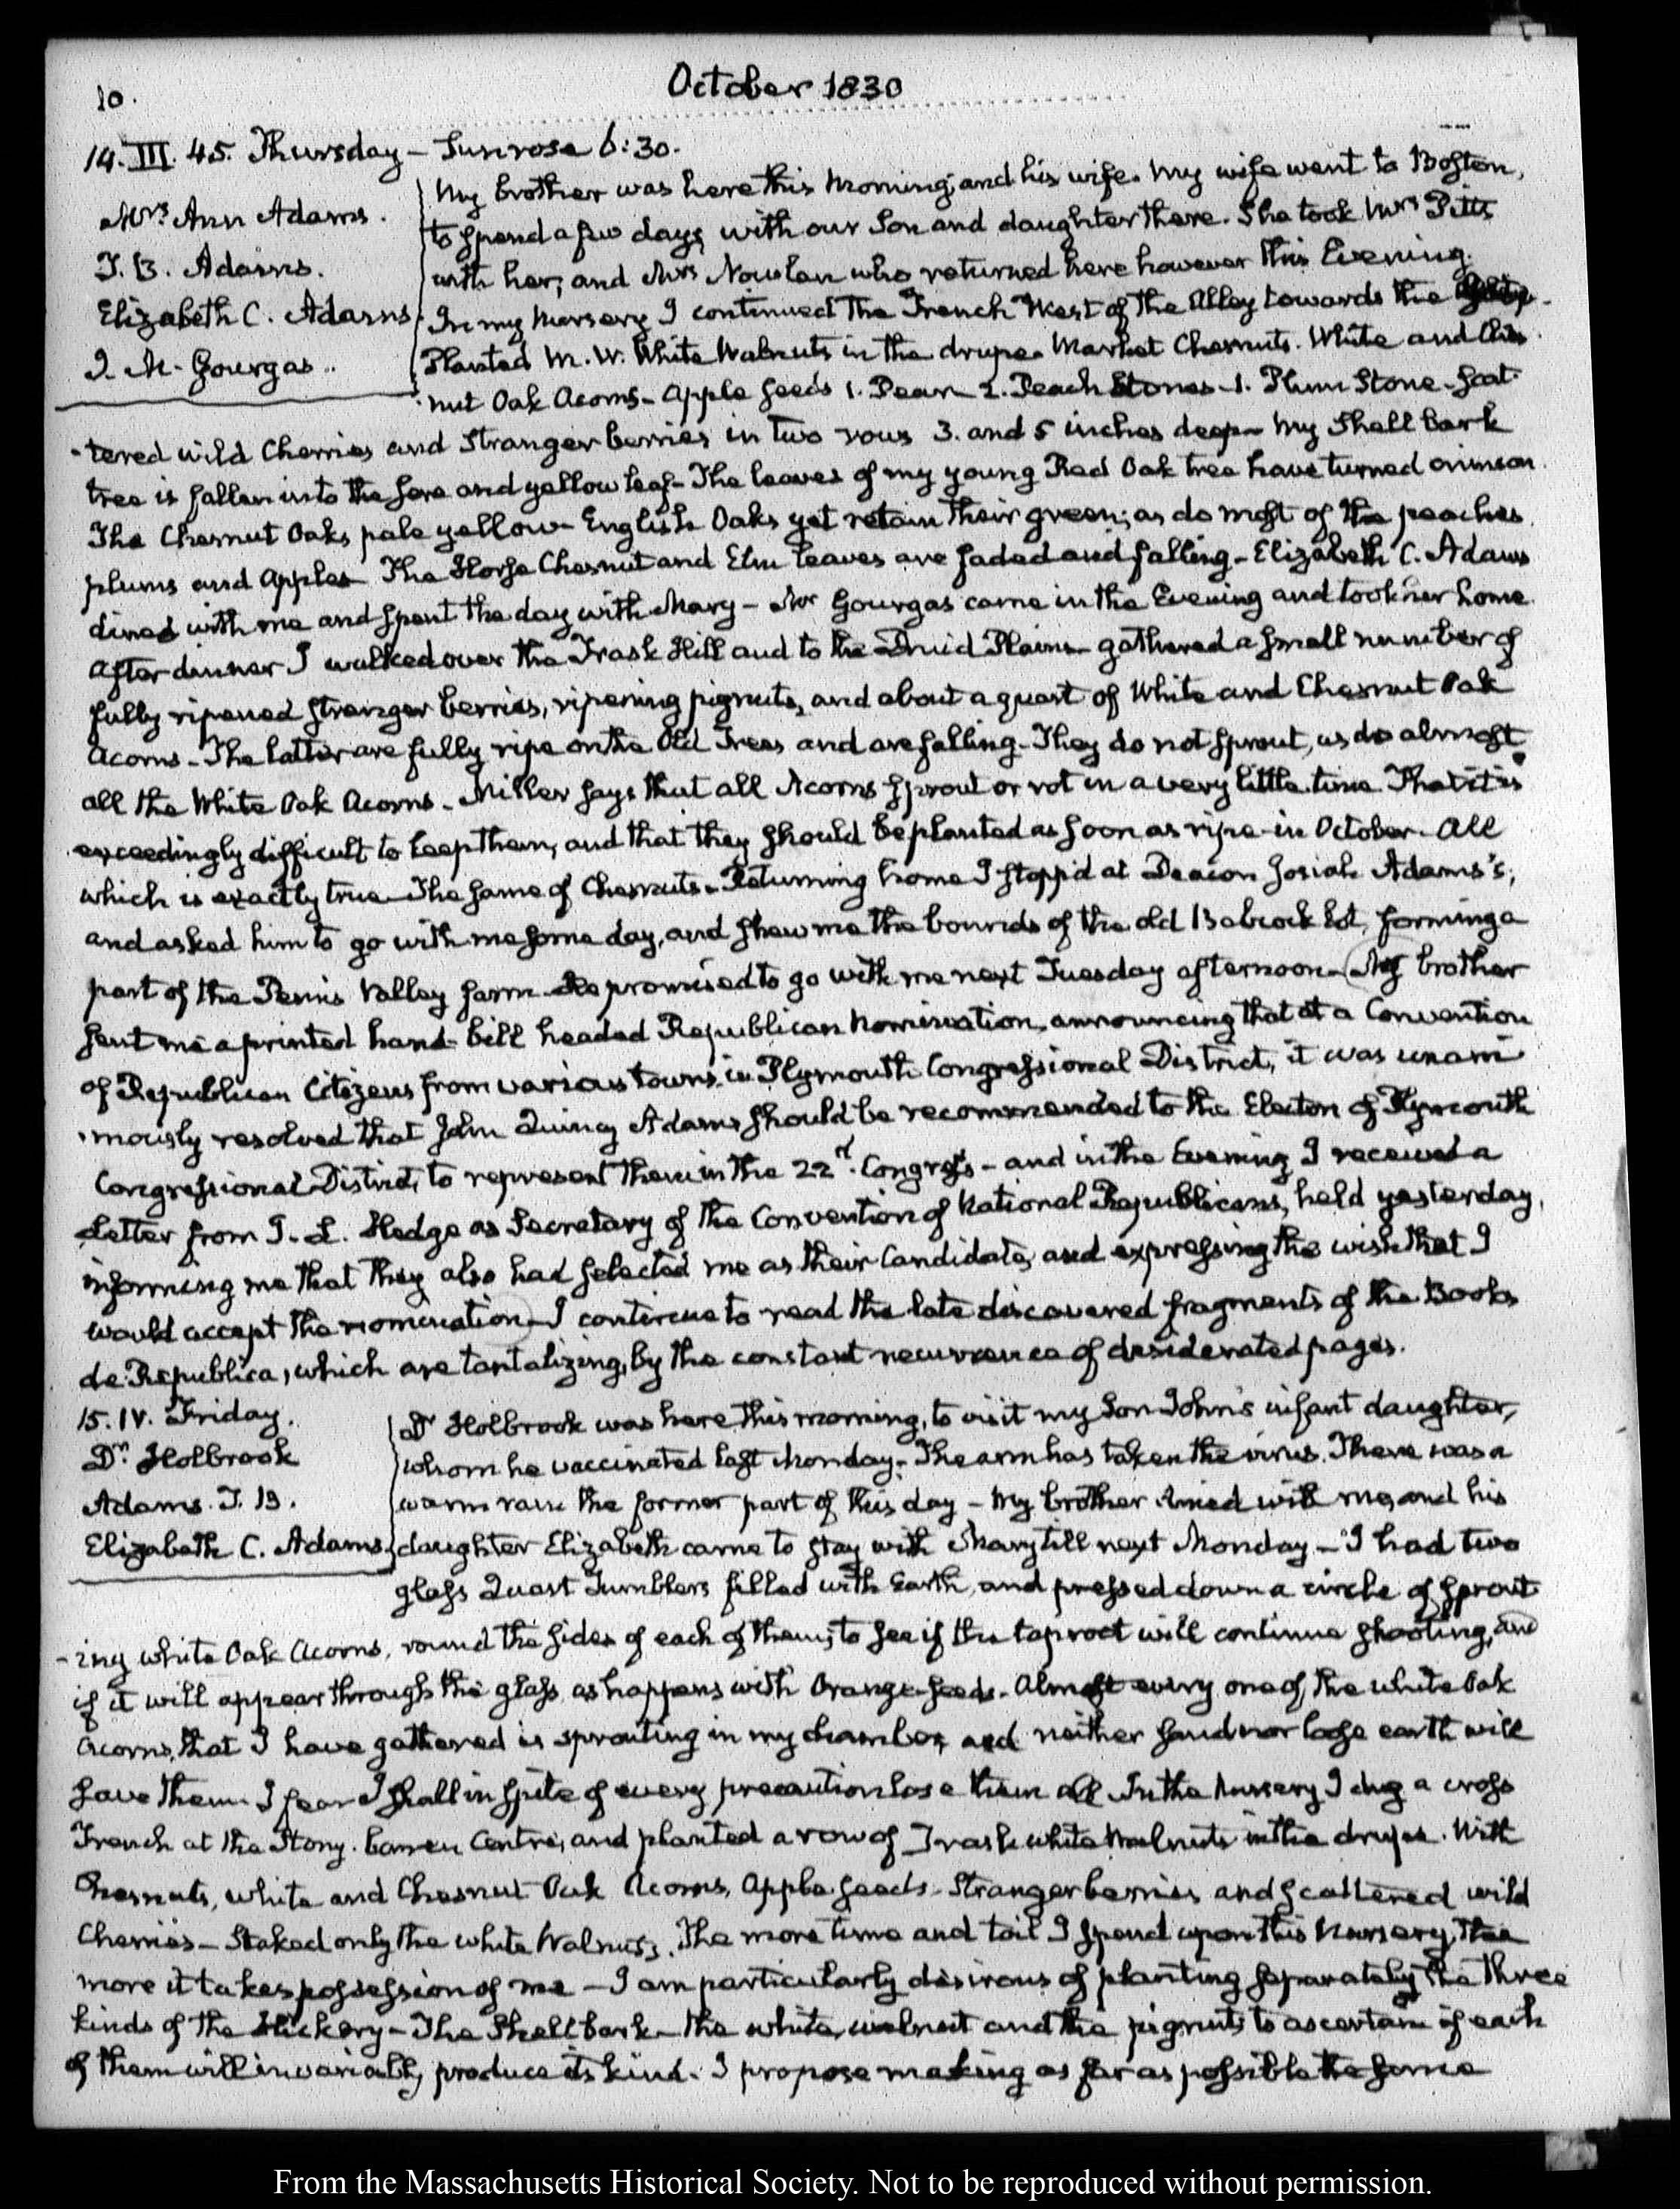 10.
October 1830
14. III. 45. Thursday – Sun rose 6:30.
Mrs. Ann Adams.
T. B. Adams.
Elizabeth C. Adams
I. M. Gourgas..
My brother was here this Morning, and his wife. My wife went to Boston,
to spend a few days with our Son and daughter there. She took Mrs Pitts
with her, and Mrs Nowlan who returned here however this Evening.
In my Nursery I continued the Trench West of the Alley towards the
Planted M. W. White Walnuts in the drupe. Market Chesnuts. White and Ches
nut Oak Acorns – Apple seeds 1. Pear 2. Peach Stones – 1. Plum Stone – Scat
-tered wild Cherries and Stranger berries in two rows 3. and 5 inches deep – My Shell bark
tree is fallen into the sere and yellow leaf – The leaves of my young Red Oak tree have turned crimson.
The Chesnut Oaks pale yellow – English Oaks yet retain their green; as do most of the peaches
plums and Apples – The Horse Chesnut and Elm leaves are faded and falling – Elizabeth C. Adams
dined with me and spent the day with Mary – Mr Gourgas came in the Evening and took her home.
After dinner I walked over the Trask Hill and to the Druid Plains – gathered a small number of
fully ripened stranger berries, ripening pignuts, and about a quart of White and Chesnut Oak
Acorns – The latter are fully ripe on the Old Trees and are falling – They do not sprout, as do almost
all the White Oak Acorns – Miller says that all Acorns sprout or rot in a very little time. That it is
exceedingly difficult to keep them, and that they should be planted as soon as ripe – in October. All
which is exactly true – The same of Chesnuts – Returning home I stopp'd at Deacon Josiah Adams's,
and asked him to go with me some day, and shew me the bounds of the old Babcock lot, forming a
part of the Penn's Valley farm – He promised to go with me next Tuesday afternoon – My brother
sent me a printed hand-bill headed Republican Nomination, announcing that at a Convention
of Republican Citizens from various towns in Plymouth Congressional District, it was unani
-mously resolved that John Quincy Adams should be recommended to the Electors of Plymouth
Congressional District, to represent them in the 22d. Congress – and in the Evening I received a
Letter from I. L. Hedge as Secretary of the Convention of National Republicans, held yesterday,
informing me that they also had selected me as their Candidate, and expressing the wish that I
would accept the nomination – I continue to read the late discovered fragments of the Books
de Republica, which are tantalizing, by the constant recurrence of desiderated pages.
15. IV. Friday.
Dr. Holbrook
Adams. T. B.
Elizabeth C. Adams
Dr Holbrook was here this morning, to visit my Son John's infant daughter,
whom he vaccinated last Monday. The arm has taken the virus. There was a
warm rain the former part of this day – My brother dined with me, and his
daughter Elizabeth came to stay with Mary till next Monday – I had two
glass Quart Tumblers filled with Earth, and pressed down a circle of sprout
-ing white Oak Acorns, round the sides of each of them, to see if the taproot will continue shooting, and
if it will appear through the glass, as happens with Orange-seeds. Almost every one of the white Oak
Acorns, that I have gathered is sprouting in my chamber, and neither sand nor loose earth will
save them. I fear I shall in spite of every precaution lose them all. In the Nursery I dug a cross
Trench at the Stony barren Centre, and planted a row of Trask white Walnuts in the drupe. With
Chesnuts, white and Chesnut Oak Acorns, Apple seeds – Stranger berries and scattered wild
Cherries – Staked only the white Walnuts. The more time and toil I spend upon this Nursery, the
more it takes possession of me – I am particularly desirous of planting separately the three
kinds of the Hickory – The Shellbark – the white walnut and the pignut, to ascertain if each
of them will invariably produce its kind. I propose making as far as possible the same
From the Massachusetts Historical Society. Not to be reproduced without permission.